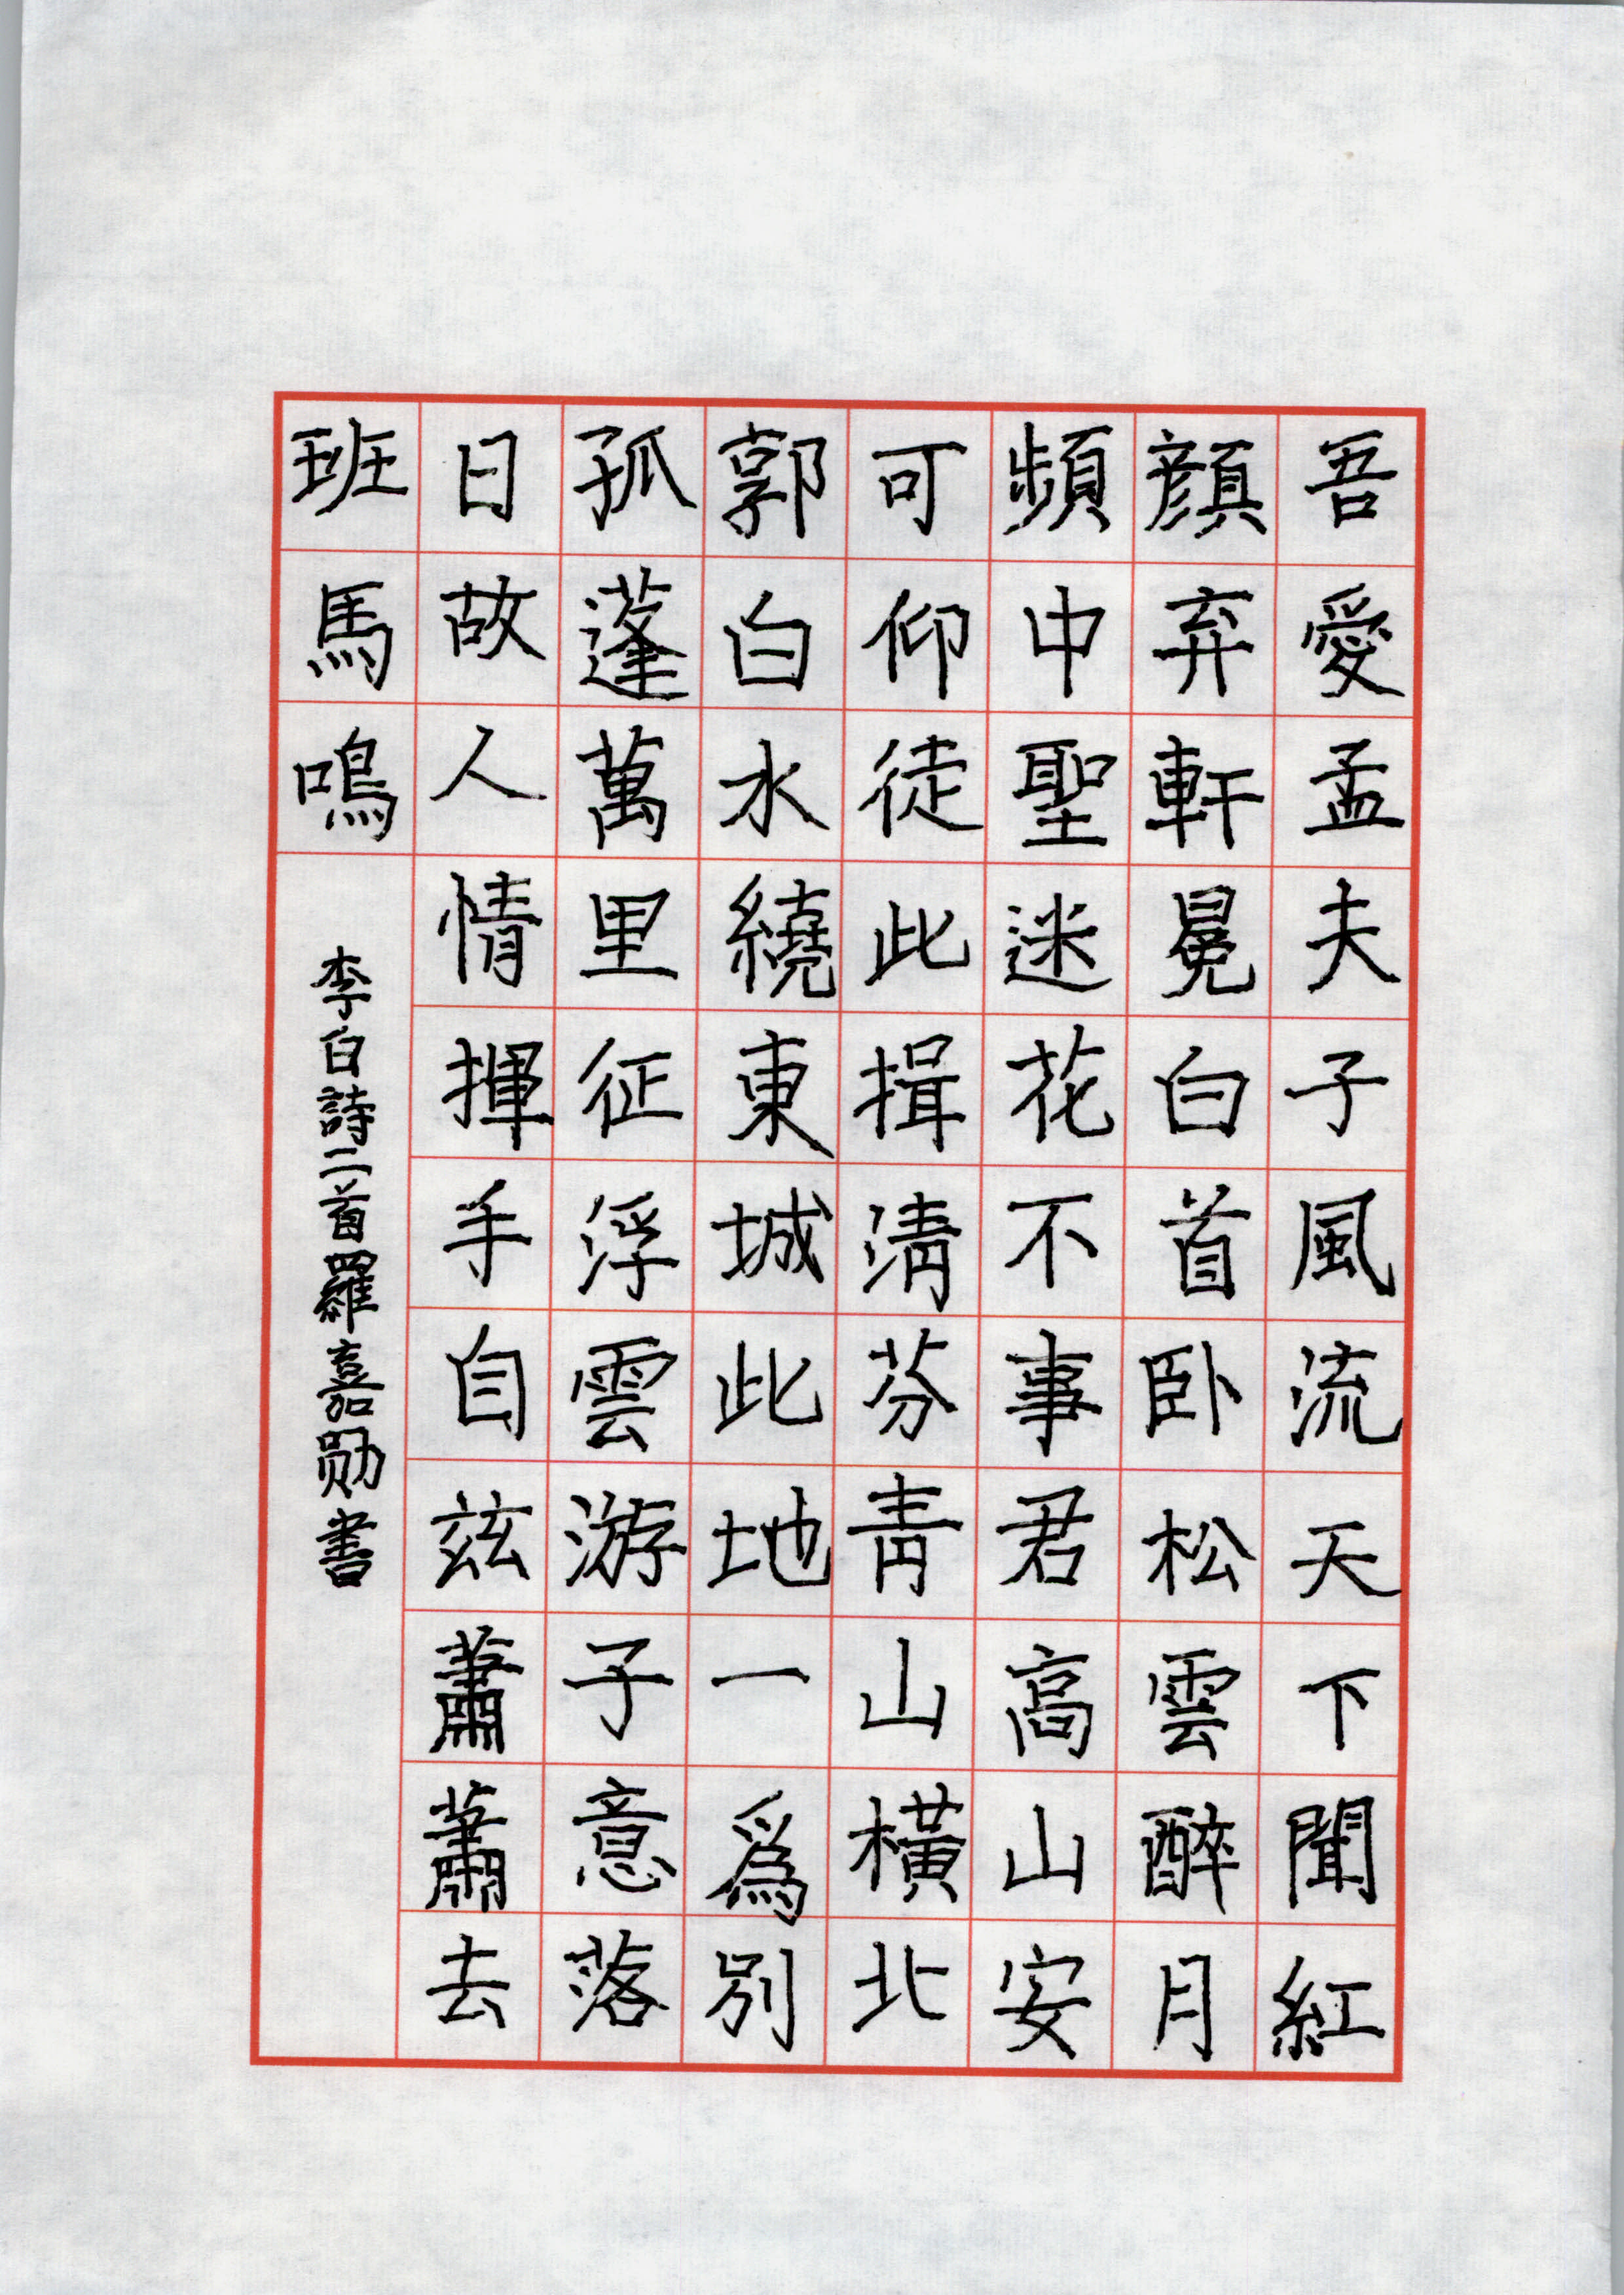 吾愛孟夫子風流天下聞紅
顏弃軒冕白首卧松雲醉月
頻中聖迷花不事君高山安
可仰徒此揖清芬青山橫北
郭白水繞東城此地一為別
孤蓬萬里征浮雲游子意落
日故人情揮手自茲蕭蕭去
班馬鳴
李白詩二首羅嘉勛書